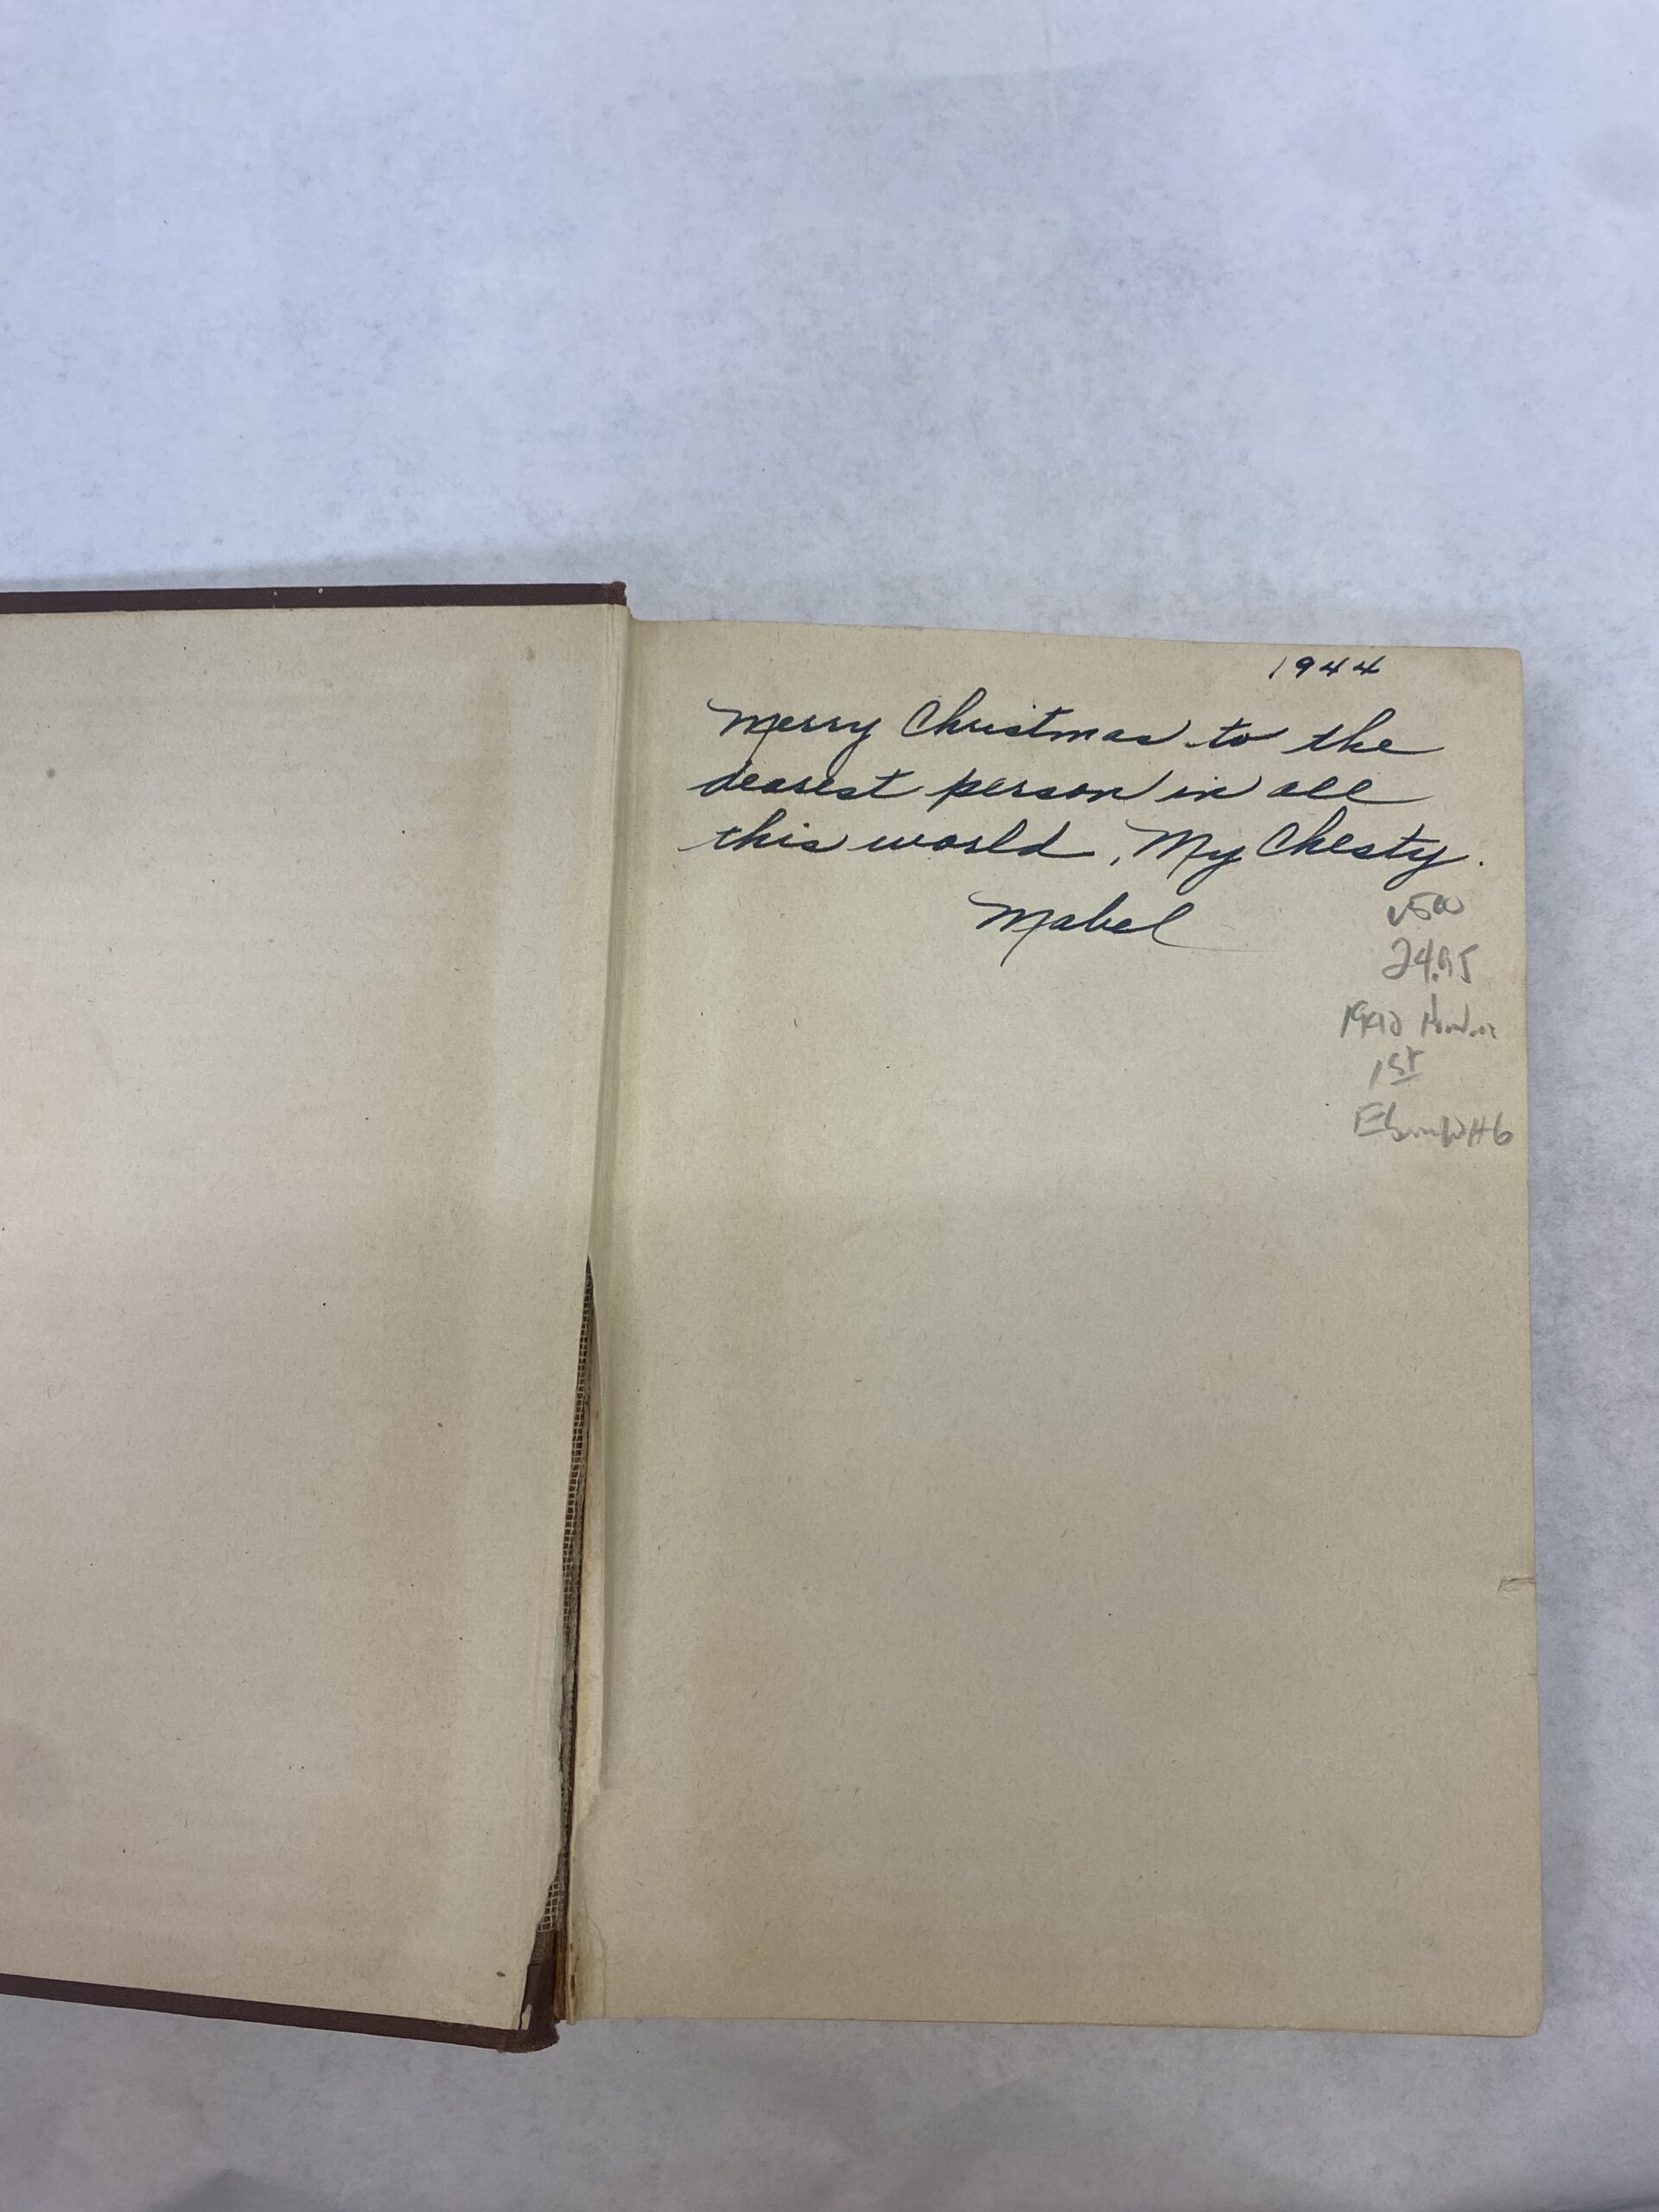 1944
Merry Christmas to the
dearest person in all
this world, My Chesty.
Mabel
24.95
1st